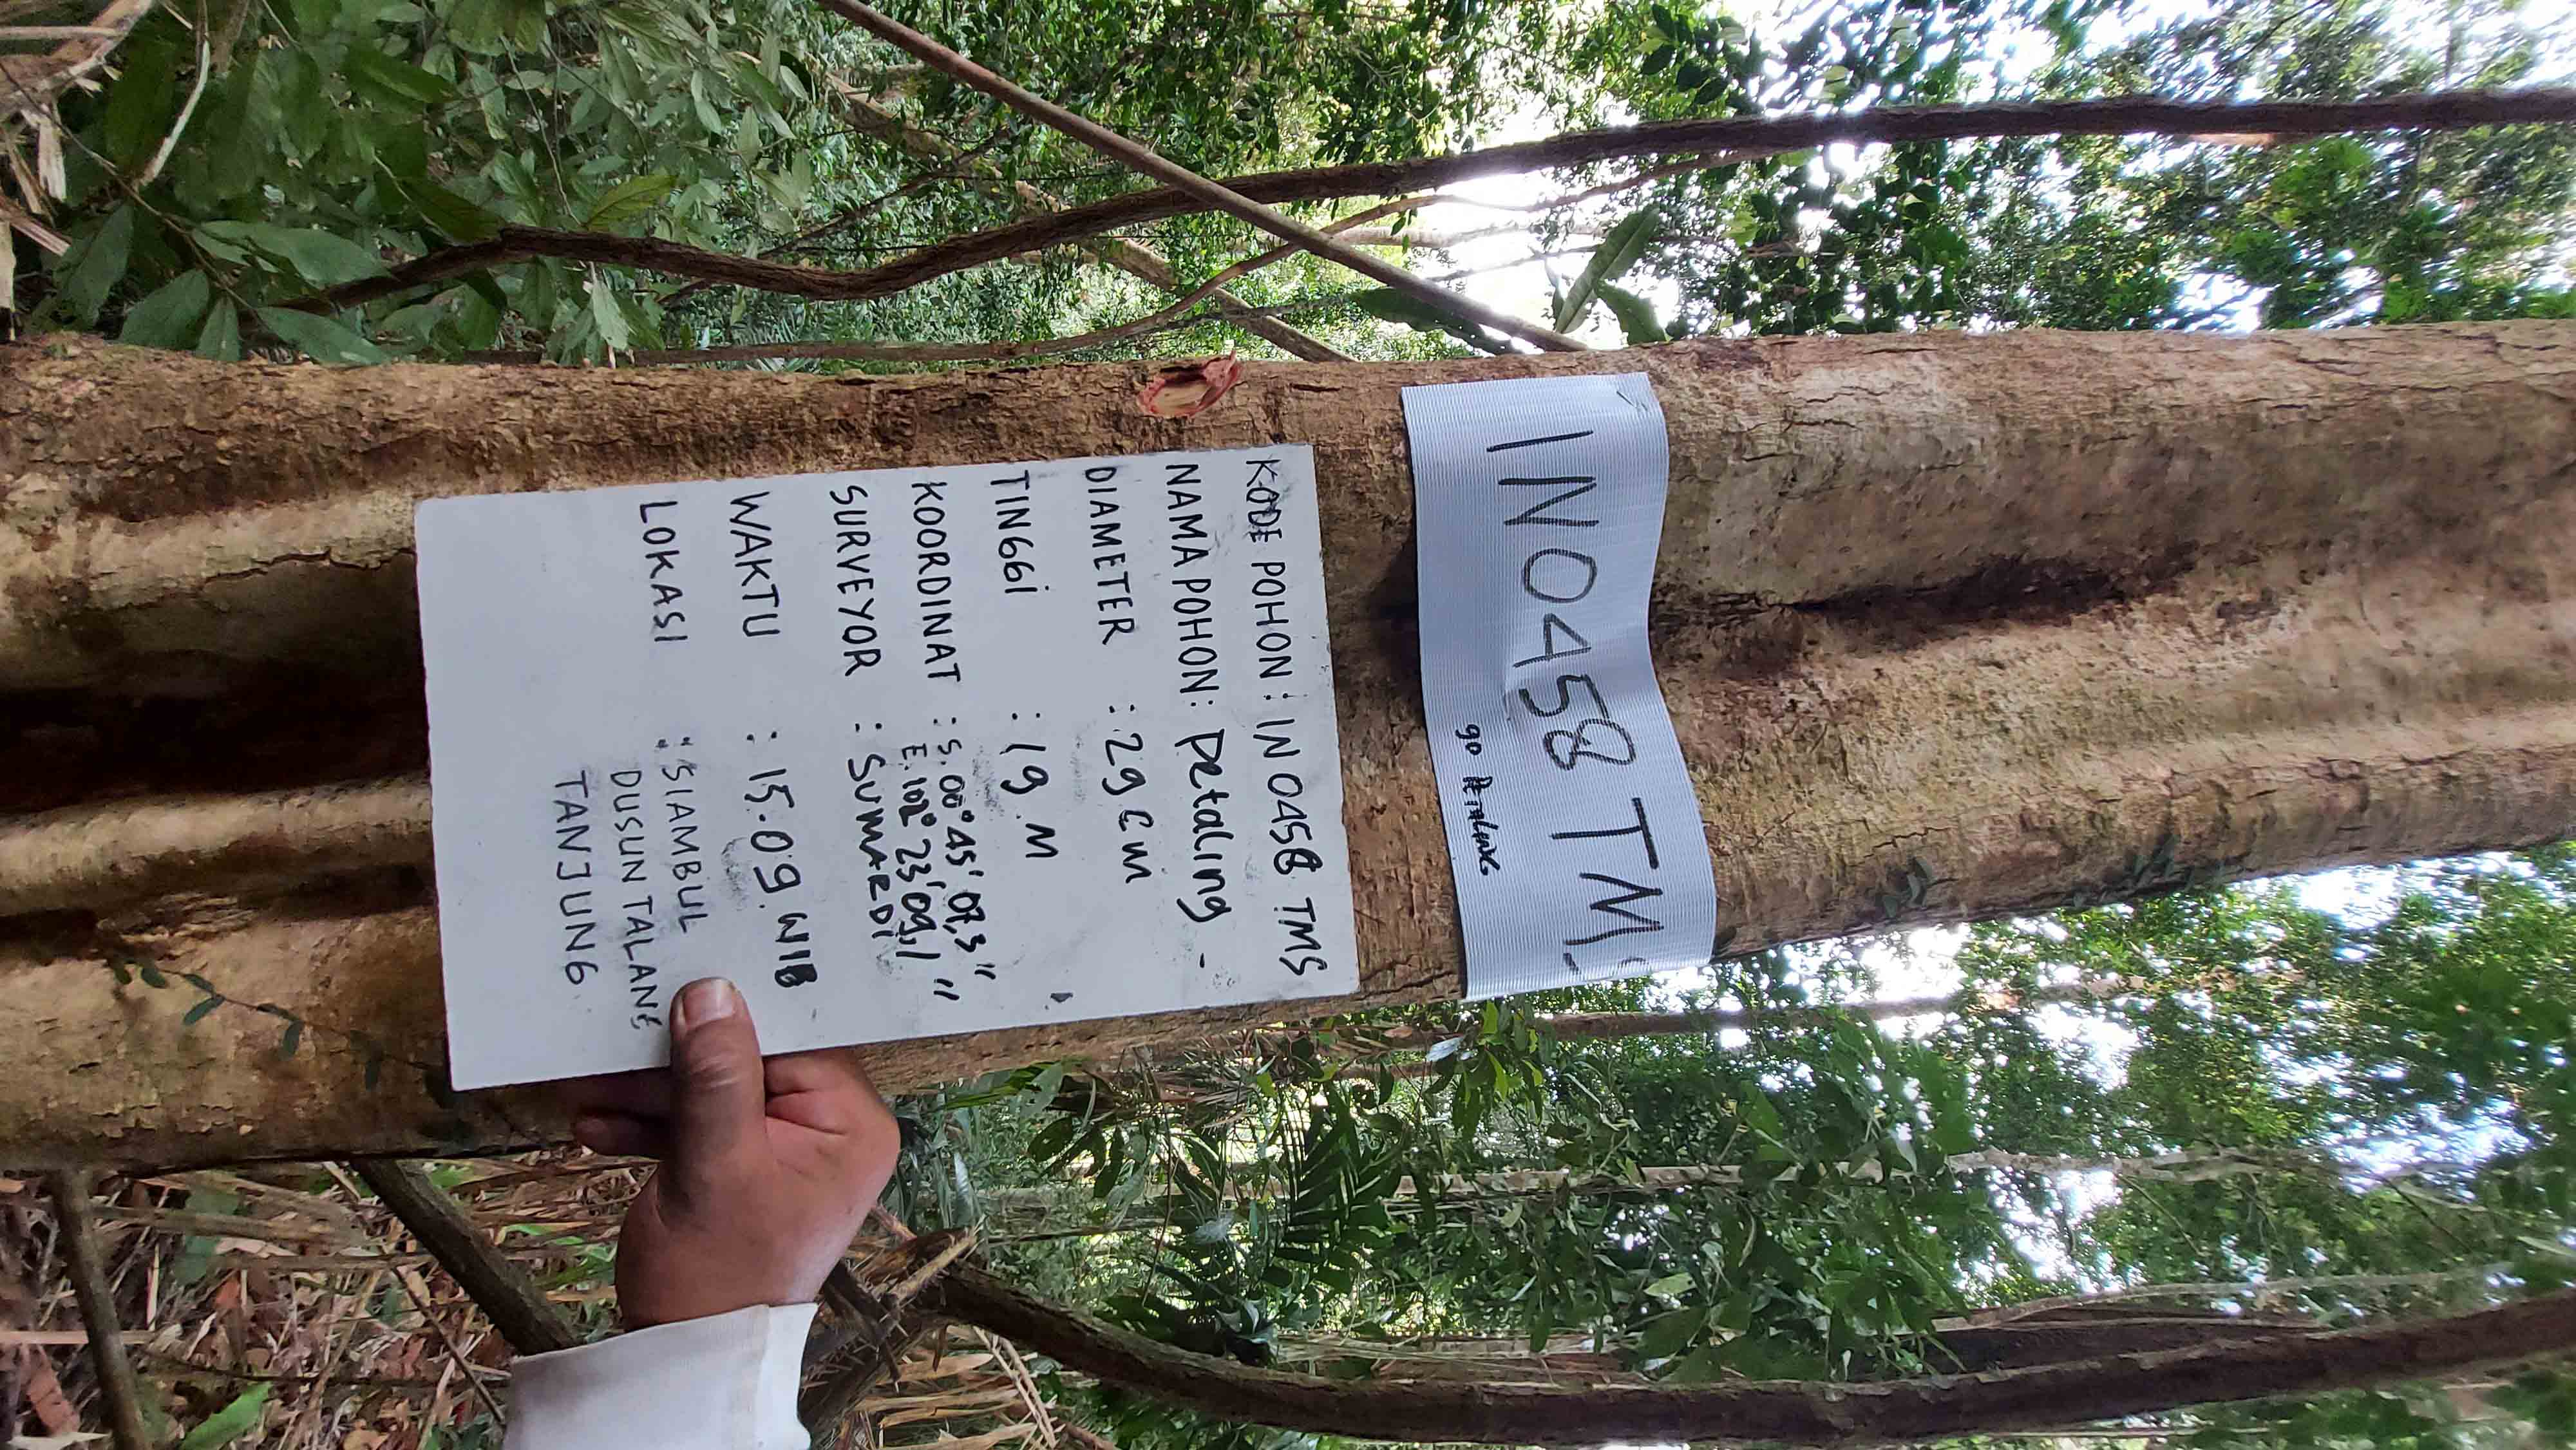 IN0458 TMS
90 PETALING
KODE POHON : IN 0458 TMS
NAMA POHON : Petaling -
DIAMETER : 29 cm
TINGGI : 19 M
KOORDINAT : S. 00° 45' 07,3"
E. 102° 23' 09,1"
SURVEYOR : SUMARDI
WAKTU : 15.09 WIB
LOKASI : SIAMBUL
DUSUN TALANG
TANJUNG